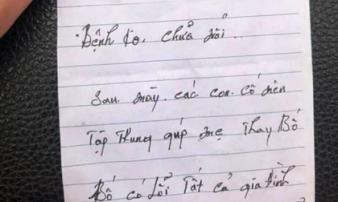 Bệnh to. chưa rồi..
Sau này. các con. cố nên
Tập Trung giúp mẹ Thay Bố
Bố có Lỗi Tất cả gia đình